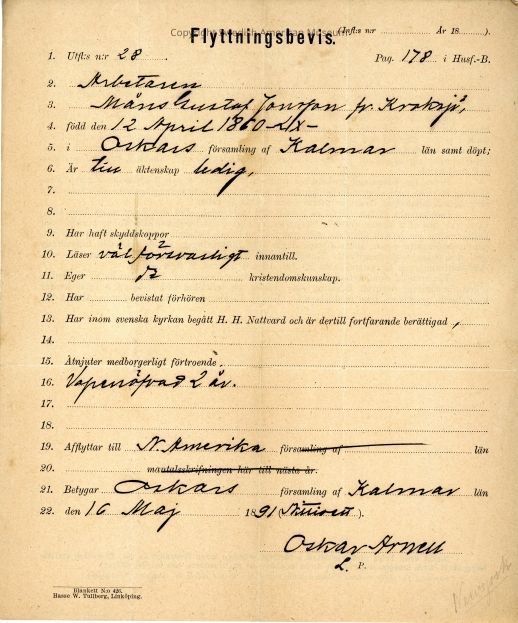 Copyright Swedish American Museum
Flyttningsbevis.
(Infl:s n:r År 18 ).
1. Utfl:s n:r 28. Pag. 178 i Husf.-B.
2. Arbetaren
3. Måns Gustaf Jonsson fr. Kroksjö,
4. född den 12 April 1860
5. i Oskars församling af Kalmar län samt döpt;
6. Är till äktenskap ledig,
7.
8.
9. Har haft skyddskoppor
10. Läser väl försvarligt innantill.
11. Eger kristendomskunskap.
12. Har bevistat förhören
13. Har inom svenska kyrkan begått H. H. Nattvard och är dertill fortfarande berättigad,
14.
15. Åtnjuter medborgerligt förtroende.
16. Vapenöfvad 2 år.
17.
18.
19. Afflyttar till N. Amerika församling af län
20. mantalsskrifningen här till nästa år.
21. Betygar Oskars församling af Kalmar län
22. den 16 Maj 1891 ( ).
Oskar Arnell
L. P.
Blankett N:o 426.
Hasse W. Tullberg, Linköping.